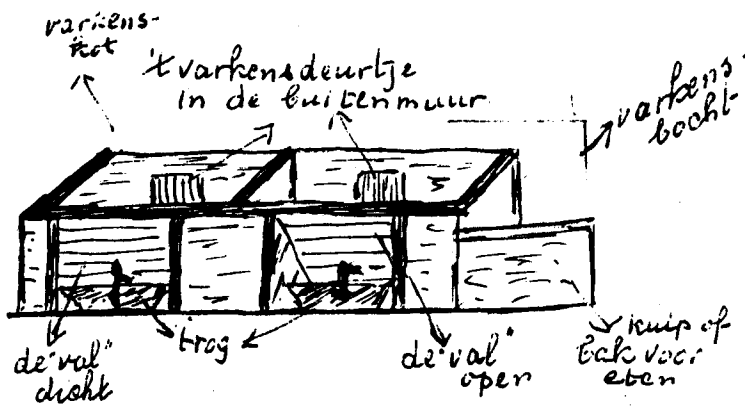 varkens-
kot
't varkensdeurtje
in de buitenmuur
varkens-
bocht
de "val"
dicht
trog
de "val"
open
kuip of
bak voor
eten